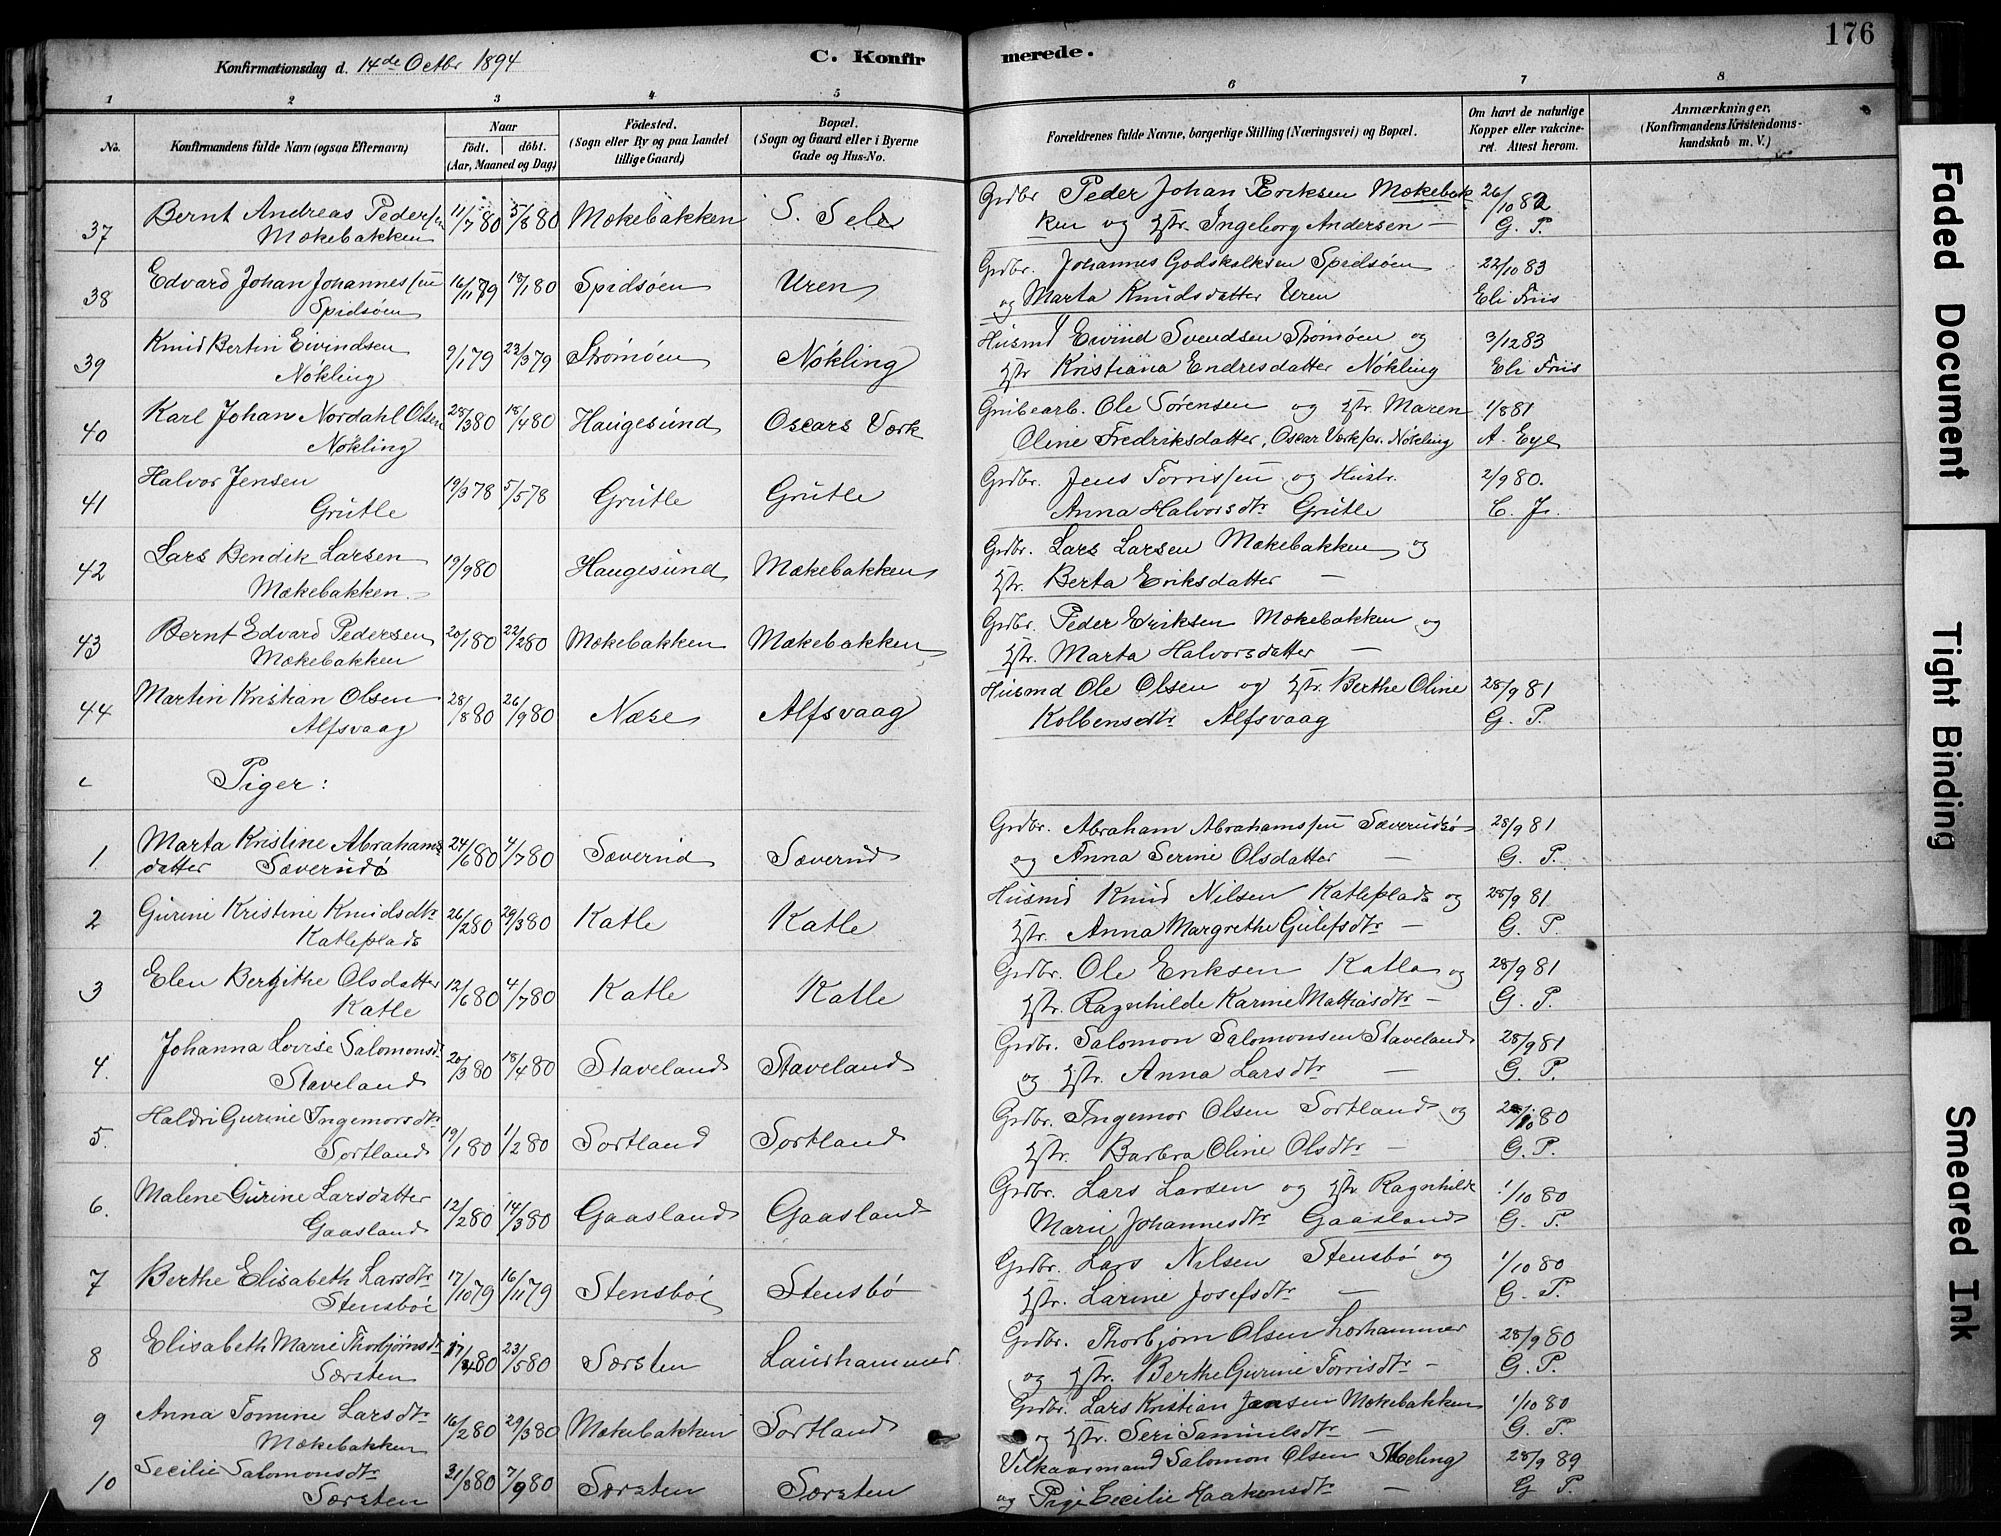 176
Konfirmationsdag d. 14de Octbr 1894
C. Konfirmerede.
1 2 3 4 5 6 7 8
No.
Konfirmandens fulde Navn (ogsaa Efternavn)
Naar
födt. döbt.
(Aar, Maaned og Dag)
Födested.
(Sogn eller By og paa Landet
tillige Gaard)
Bopæl.
(Sogn og Gaard eller i Byerne
Gade og Hus-No.
Forældrenes fulde Navne, borgerlige Stilling (Næringsvei) og Bopæl.
Om havt de naturlige
Kopper eller vakcine-
ret. Attest herom.
Anmærkninger.
(Konfirmandens Kristendoms-
kundskab m. V.)
37 Bernt Andreas Pedersen 11/7 80 5/8 80 Mækebakken S. Sele Grdbr Peder Johan Eriksen Mækebak 26/10 82
Mækebakken ken og Hstr. Ingeborg Andersen — G. P.
38 Edvard Johan Johannessen 16/11 79 18/1 80 Spidsøen Uren Grdbr. Johannes Godskalksen Spidsøen 22/10 83
Spidsøen og Marta Knudsdatter Uren Eli Friis
39 Knud Bertin Eivindsen 9/1 79 23/3 79 Strømøen Nøkling Husmd Eivind Svendsen Strømøen og 3/12 83
Nøkling Hstr Kristiana Endresdatter Nøkling Eli Friis
40 Karl Johan Nordahl Olsen 28/3 80 18/4 80 Haugesund Oscars Værk Grubearb. Ole Sørensen og Hstr. Maren 1/8 81
Nøkling Oline Fredriksdatter, Oscar Værk pr. Nøkling A. Eye
41 Halvor Jensen 19/3 78 5/5 78 Grutle Grutle Grdbr. Jens Torrissen og Hustr. 2/9 80.
Grutle Anna Halvorsdtr Grutle C. J.
42 Lars Bendik Larsen 19/9 80 Haugesund Mækebakken Grdbr. Lars Larsen Mækebakken og
Mækebakken. Hstr. Berta Eriksdatter —
43 Bernt Edvard Pedersen 20/1 80 22/2 80 Mækebakken Mækebakken Grdbr. Peder Eriksen Mækebakken og
Mækebakken Hstr. Marta Halvorsdatter —
44 Martin Kristian Olsen 28/8 80 26/9 80 Næse Alfsvaag Husmd Ole Olsen og Hstr. Berthe Oline 28/9 81
Alfsvaag Kolbensdtr Alfsvaag G. P.
Piger:
1 Marta Kristine Abrahams 24/6 80 4/7 80 Sæverud Sæverud Grdbr. Abraham Abrahamssen Sæverudsø 28/9 81
datter Sæverudø og Anna Serine Olsdatter — G. P.
2 Gurine Kristine Knudsdtr 26/2 80 29/3 80 Katle Katle Husmd Knud Nilsen Katleplads og 28/9 81
Katleplads Hstr. Anna Margrethe Gulefsdtr — G. P.
3 Elen Bergithe Olsdatter 12/6 80 4/7 80 Katle Katle Grdbr. Ole Eriksen Katla og 28/9 81
Katle Hstr. Ragnhilde Karine Mathiasdtr — G. P.
4. Johanna Lovise Salomonsdtr 20/3 80 18/4 80 Staveland Staveland Grdbr. Salomon Salomonsen Staveland 28/9 81
Staveland og Hstr. Anna Larsdtr — G. P.
5. Haldri Gurine Ingemorsdtr 19/1 80 1/2 80 Sortland Sortland Grdbr. Ingemor Olsen Sortland og /10 80
Sortland Hstr. Barbra Oline Olsdtr — G. P.
6. Malene Gurine Larsdatter 12/2 80 14/3 80 Gaasland Gaasland Grdbr. Lars Larsen og Hstr Ragnhilde 1/10 80
Gaasland Marie Johannesdtr Gaasland G. P.
7 Berthe Elisabeth Larsdtr 17/10 79 16/11 79 Stensbøe Stensbø Grdbr. Lars Nilsen Stensbø og 1/10 80
Stensbøe Hstr. Larine Josefsdtr — G. P.
8 Elisabeth Marie Thorbjørnsdtr 17/4 80 23/5 80 Særsten Laurhammer Grdbr. Thorbjørn Olsen Lorhammer 28/9 80
Særsten og Hstr. Berthe Gurine Torrisdtr — G. P.
9 Anna Tomine Larsdtr 16/2 80 29/3 80 Mækebakken Sortland Grdbr. Lars Kristian Jensen Mækebakken 1/10 80
Mækebakken og Hstr. Seri Samuelsdtr — G. P.
10 Secilie Salomonsdtr 31/8 80 7/9 80 Særsten Særsten Vilkaarmand Salomon Olsen Mæling 28/9 89
Særsten og Pige Cecilie Haakonsdtr — G P.
Faded Document
Tight Binding
Smeared Ink